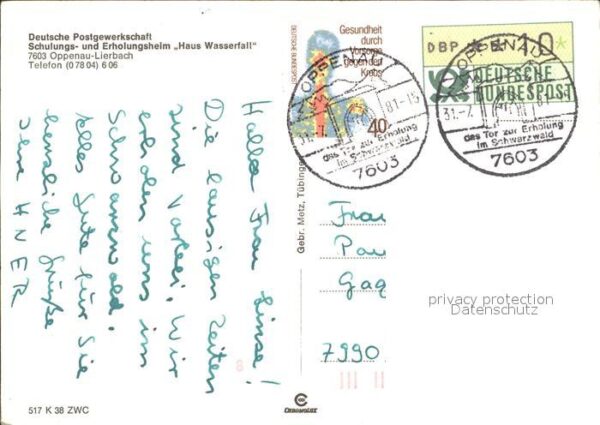 Deutsche Postgewerkschaft
Schulungs- und Erholungsheim „Haus Wasserfall"
7603 Oppenau-Lierbach
Telefon (0 78 04) 6 06
Hallo Frau Linse!
Die lausigen Zeiten
sind vorbei. Wir
erholen uns im
Schwarzwald.
Alles Gute für Sie
herzliche Grüße
Ihre HNER
517 K 38 ZWC
Gebr. Metz, Tübinge
CHROMOLUX
DEUTSCHE BUNDESPOST
Gesundheit
durch
Vorsorge
gegen den
Krebs
40
DBP
10
DEUTSCHE
BUNDESPOST
OPPENAU
31.-7.
81-15
das Tor zur Erholung
im Schwarzwald
7603
OPPENAU
31.-7.
81
das Tor zur Erholung
im Schwarzwald
7603
Frau
Pau
Gag
7990
privacy protection
Datenschutz